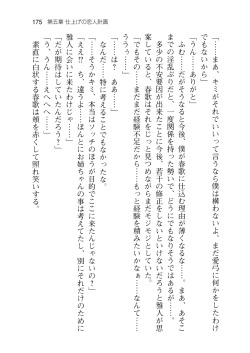 175　第五章 仕上げの恋人計画
「……まあ、キミがそれでいいって言うなら僕は構わないよ。まだ愛弓に何かをしたわけ
でもないから」
「うんっ……ありがと」
「ふむ……だがそうなると今後、僕が春歌に仕込む理由が薄くなるな……。まあ、あそこ
までの淫乱ぶりだと、一度関係を持った勢いで、どうにでもなりそうではあるが……。
多少の不安要因が出来たことに今後、若干の修正をしないといけないだろうと雅人が思
案していると、春歌はそれをじっと見つめながらまだモジモジとしていた。
「でもその……まだまだ経験不足だから……もっと経験を積みたいかなぁ……なんて……
ううう……」
「は？　ああ……」
なんだ……特に考えることでもなかったな。
「……そうかキミ、本当はソッチのほうが目的でここに来たんじゃないの？」
「ええ!?　ち、違うよ！　ほんとにお姉ちゃんの事は考えてたし、別にそれだけのために
雅人に会いに来たわけじゃ……」
「だが期待はしていたんだろう？」
「う、うん……えへへへ……」
素直に白状する春歌は頬を赤くして照れ笑いする。